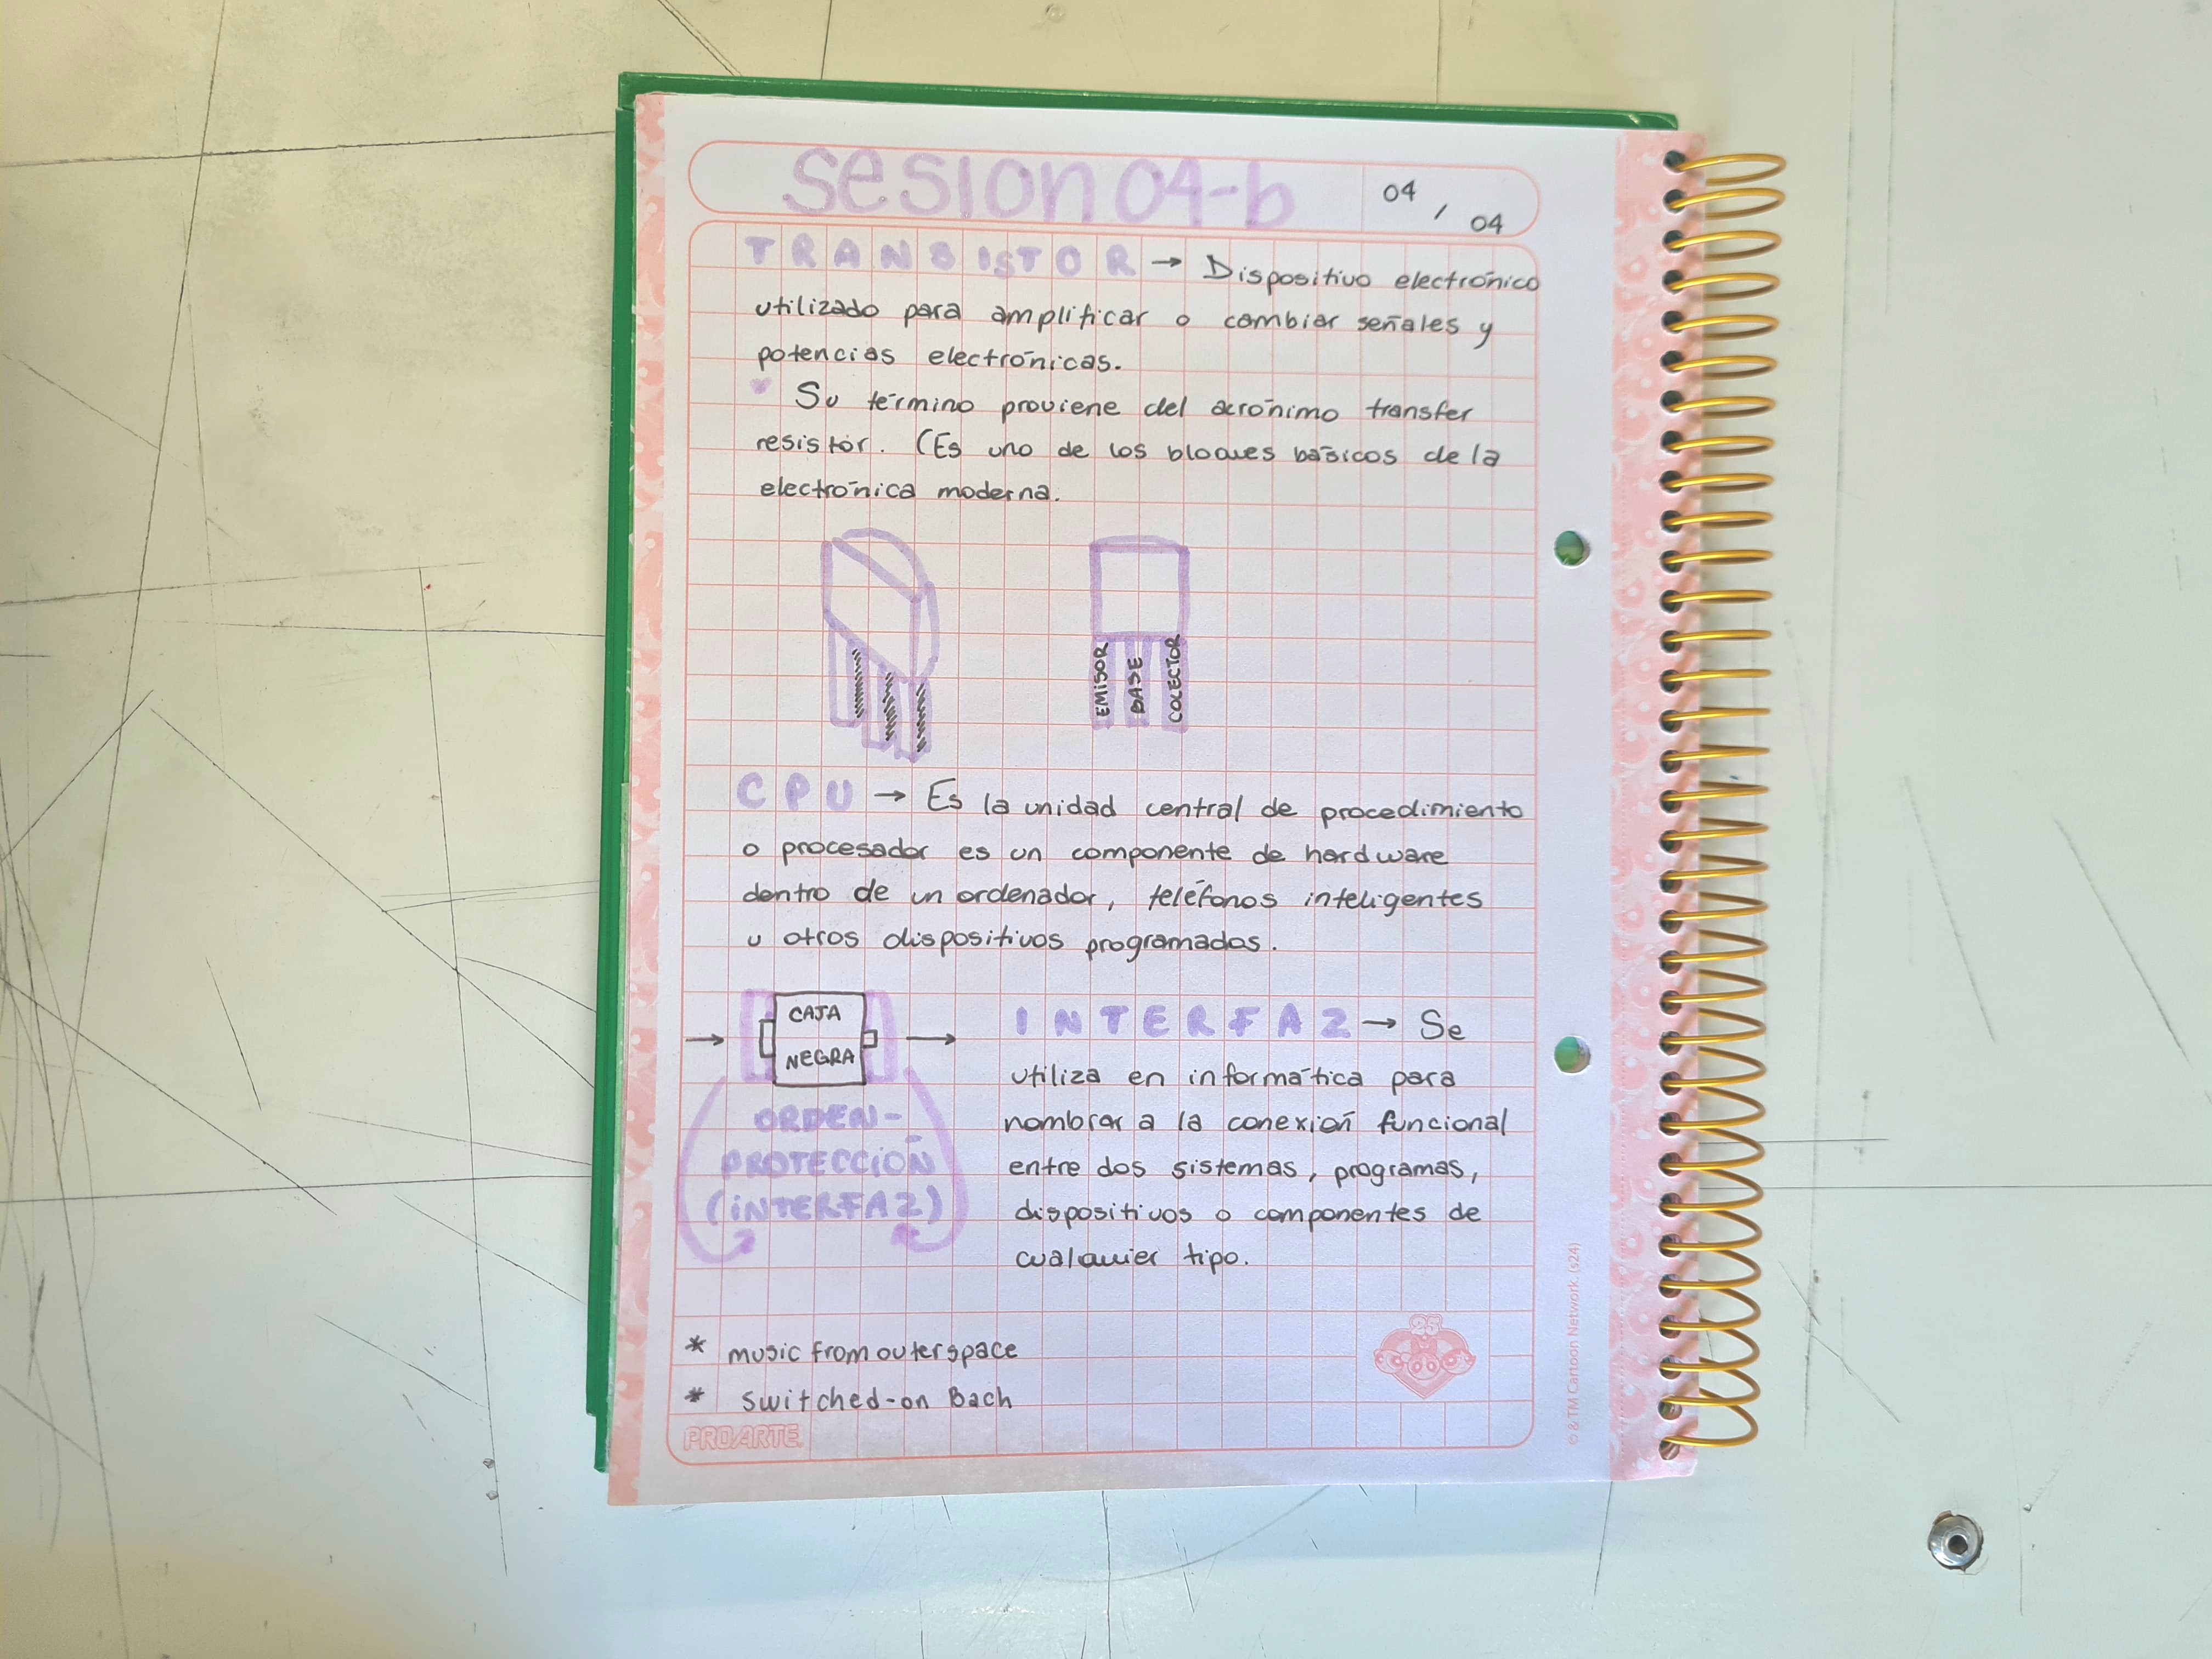 sesion 04-b
04 / 04
TRANSISTOR → Dispositivo electrónico
utilizado para amplificar o cambiar señales y
potencias electrónicas.
Su término proviene del acrónimo transfer
resistor. (Es uno de los bloques básicos de la
electrónica moderna.
EMISOR
BASE
COLECTOR
CPU → Es la unidad central de procedimiento
o procesador es un componente de hardware
dentro de un ordenador, teléfonos inteligentes
u otros dispositivos programados.
CAJA
NEGRA
ORDEN-
PROTECCIÓN
(INTERFAZ)
INTERFAZ → Se
utiliza en informática para
nombrar a la conexión funcional
entre dos sistemas, programas,
dispositivos o componentes de
cualquier tipo.
* music from outer space
* switched-on Bach
25
PROARTE
© & TM Cartoon Network. (s24)